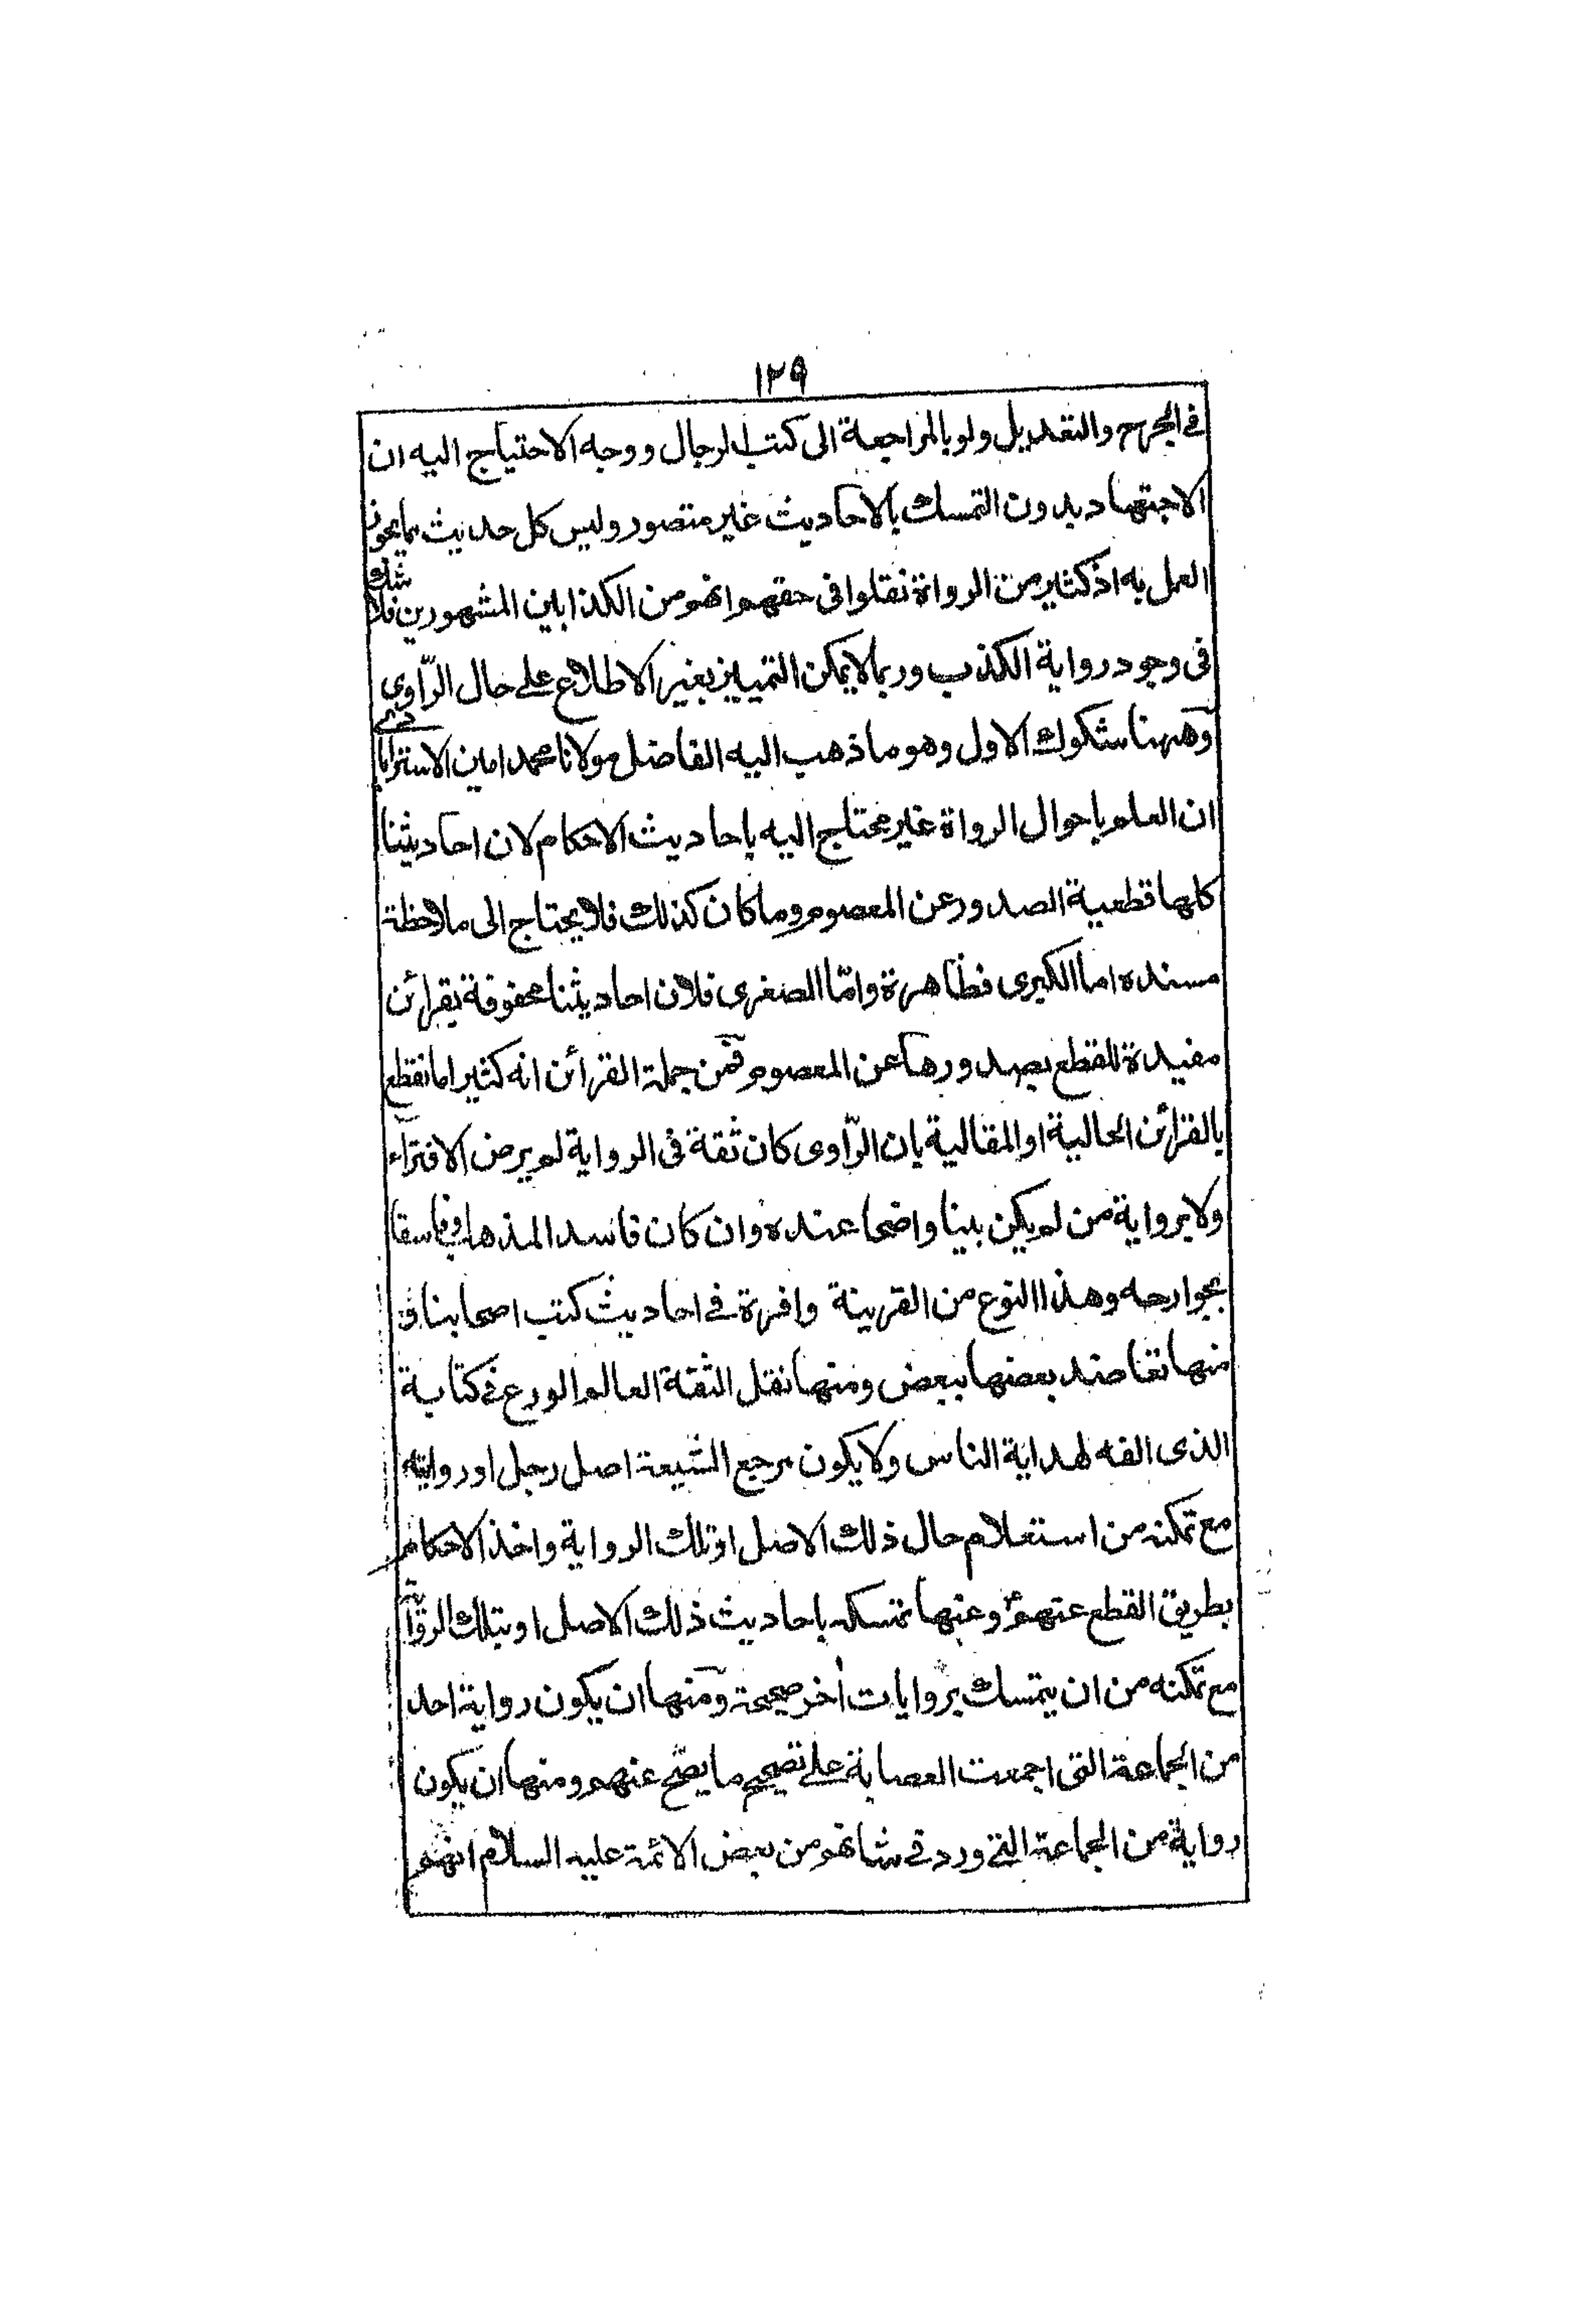 ١٢٩
في الجرح والتعديل ولو بالمراجعة الى كتب الرجال ووجه الاحتياج اليه ان
الاجتهاد بدون التمسك بالاحاديث غير متصور وليس كل حديث مما يجوز
العمل به اذ كثير من الرواة نقلوا فى حقهم انهم من الكذابين المشهورين فلا شك
فى وجود رواية الكذب وربما لا يمكن التمييز بغير الاطلاع على حال الرّاوى
وههنا شكوك الاول وهو ما ذهب اليه الفاضل مولانا محمد امين الاسترابادى
ان العلم باحوال الرواة غير محتاج اليه باحاديث الاحكام لان احاديثنا
كلها قطعية الصدور عن المعصوم وما كان كذلك فلا يحتاج الى ملاحظة
مسنده اما الكبرى فظاهرة وامّا الصغرى فلان احاديثنا محفوفة بقرائن
مفيدة للقطع بصدورها عن المعصوم فمن جملة القرائن انه كثيرا ما نقطع
بالقرائن الحالية او المقالية بان الرّاوى كان ثقة فى الرواية لم يرض الافتراء
ولا برواية من لم يكن بينا واضحا عنده وان كان فاسد المذهب او فاسقا
بجوارحه وهذا النوع من القرينة وافرة في احاديث كتب اصحابنا و
منها تعاضد بعضها ببعض ومنها نقل الثقة العالم الورع في كتابة
الذى الفه لهداية الناس ولا يكون مرجع الشيعة اصل رجل او روايته
مع تمكنه من استعلام حال ذلك الاصل او تلك الرواية واخذ الاحكام
بطريق القطع عنهم ع وعنها تمسكه باحاديث ذلك الاصل او بتلك الرواية
مع تمكنه من ان يتمسك بروايات أخر صحيحة ومنها ان يكون رواية احد
من الجماعة التى اجمعت العصابة على تصحيح ما يصّح عنهم ومنها ان يكون
رواية من الجماعة التي ورد في شانهم من بعض الائمة عليه السلام انهم